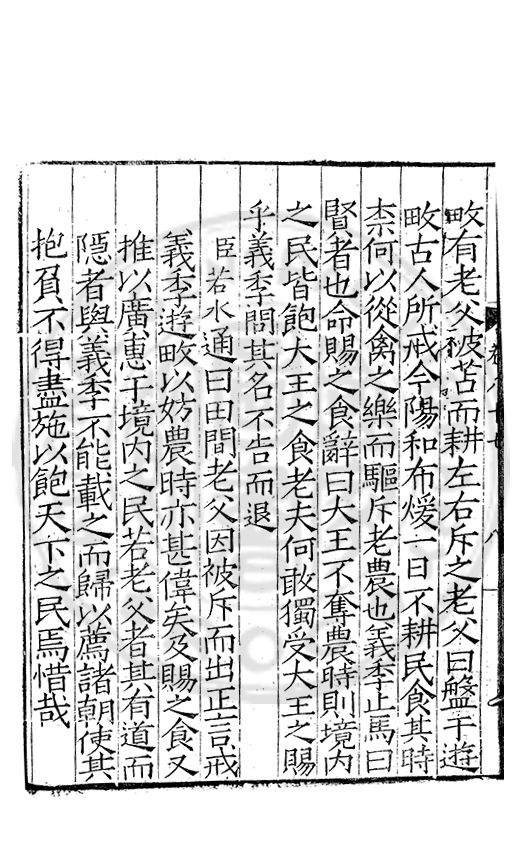 畋有老父被苫而耕左右斥之老父曰盤于遊
畋古人所戒今陽和布煖一日不耕民失其時
柰何以從禽之樂而驅斥老農也義季止馬曰
賢者也命賜之食辭曰大王不奪農時則境内
之民皆飽大王之食老夫何敢獨受大王之賜
乎義季問其名不告而退
臣若水通曰田間老父因被斥而出正言戒
義季遊畋以妨農時亦甚偉矣及賜之食又
推以廣惠于境内之民若老父者其有道而
隠者與義季不能載之而歸以薦諸朝使其
抱負不得盡施以飽天下之民焉惜哉